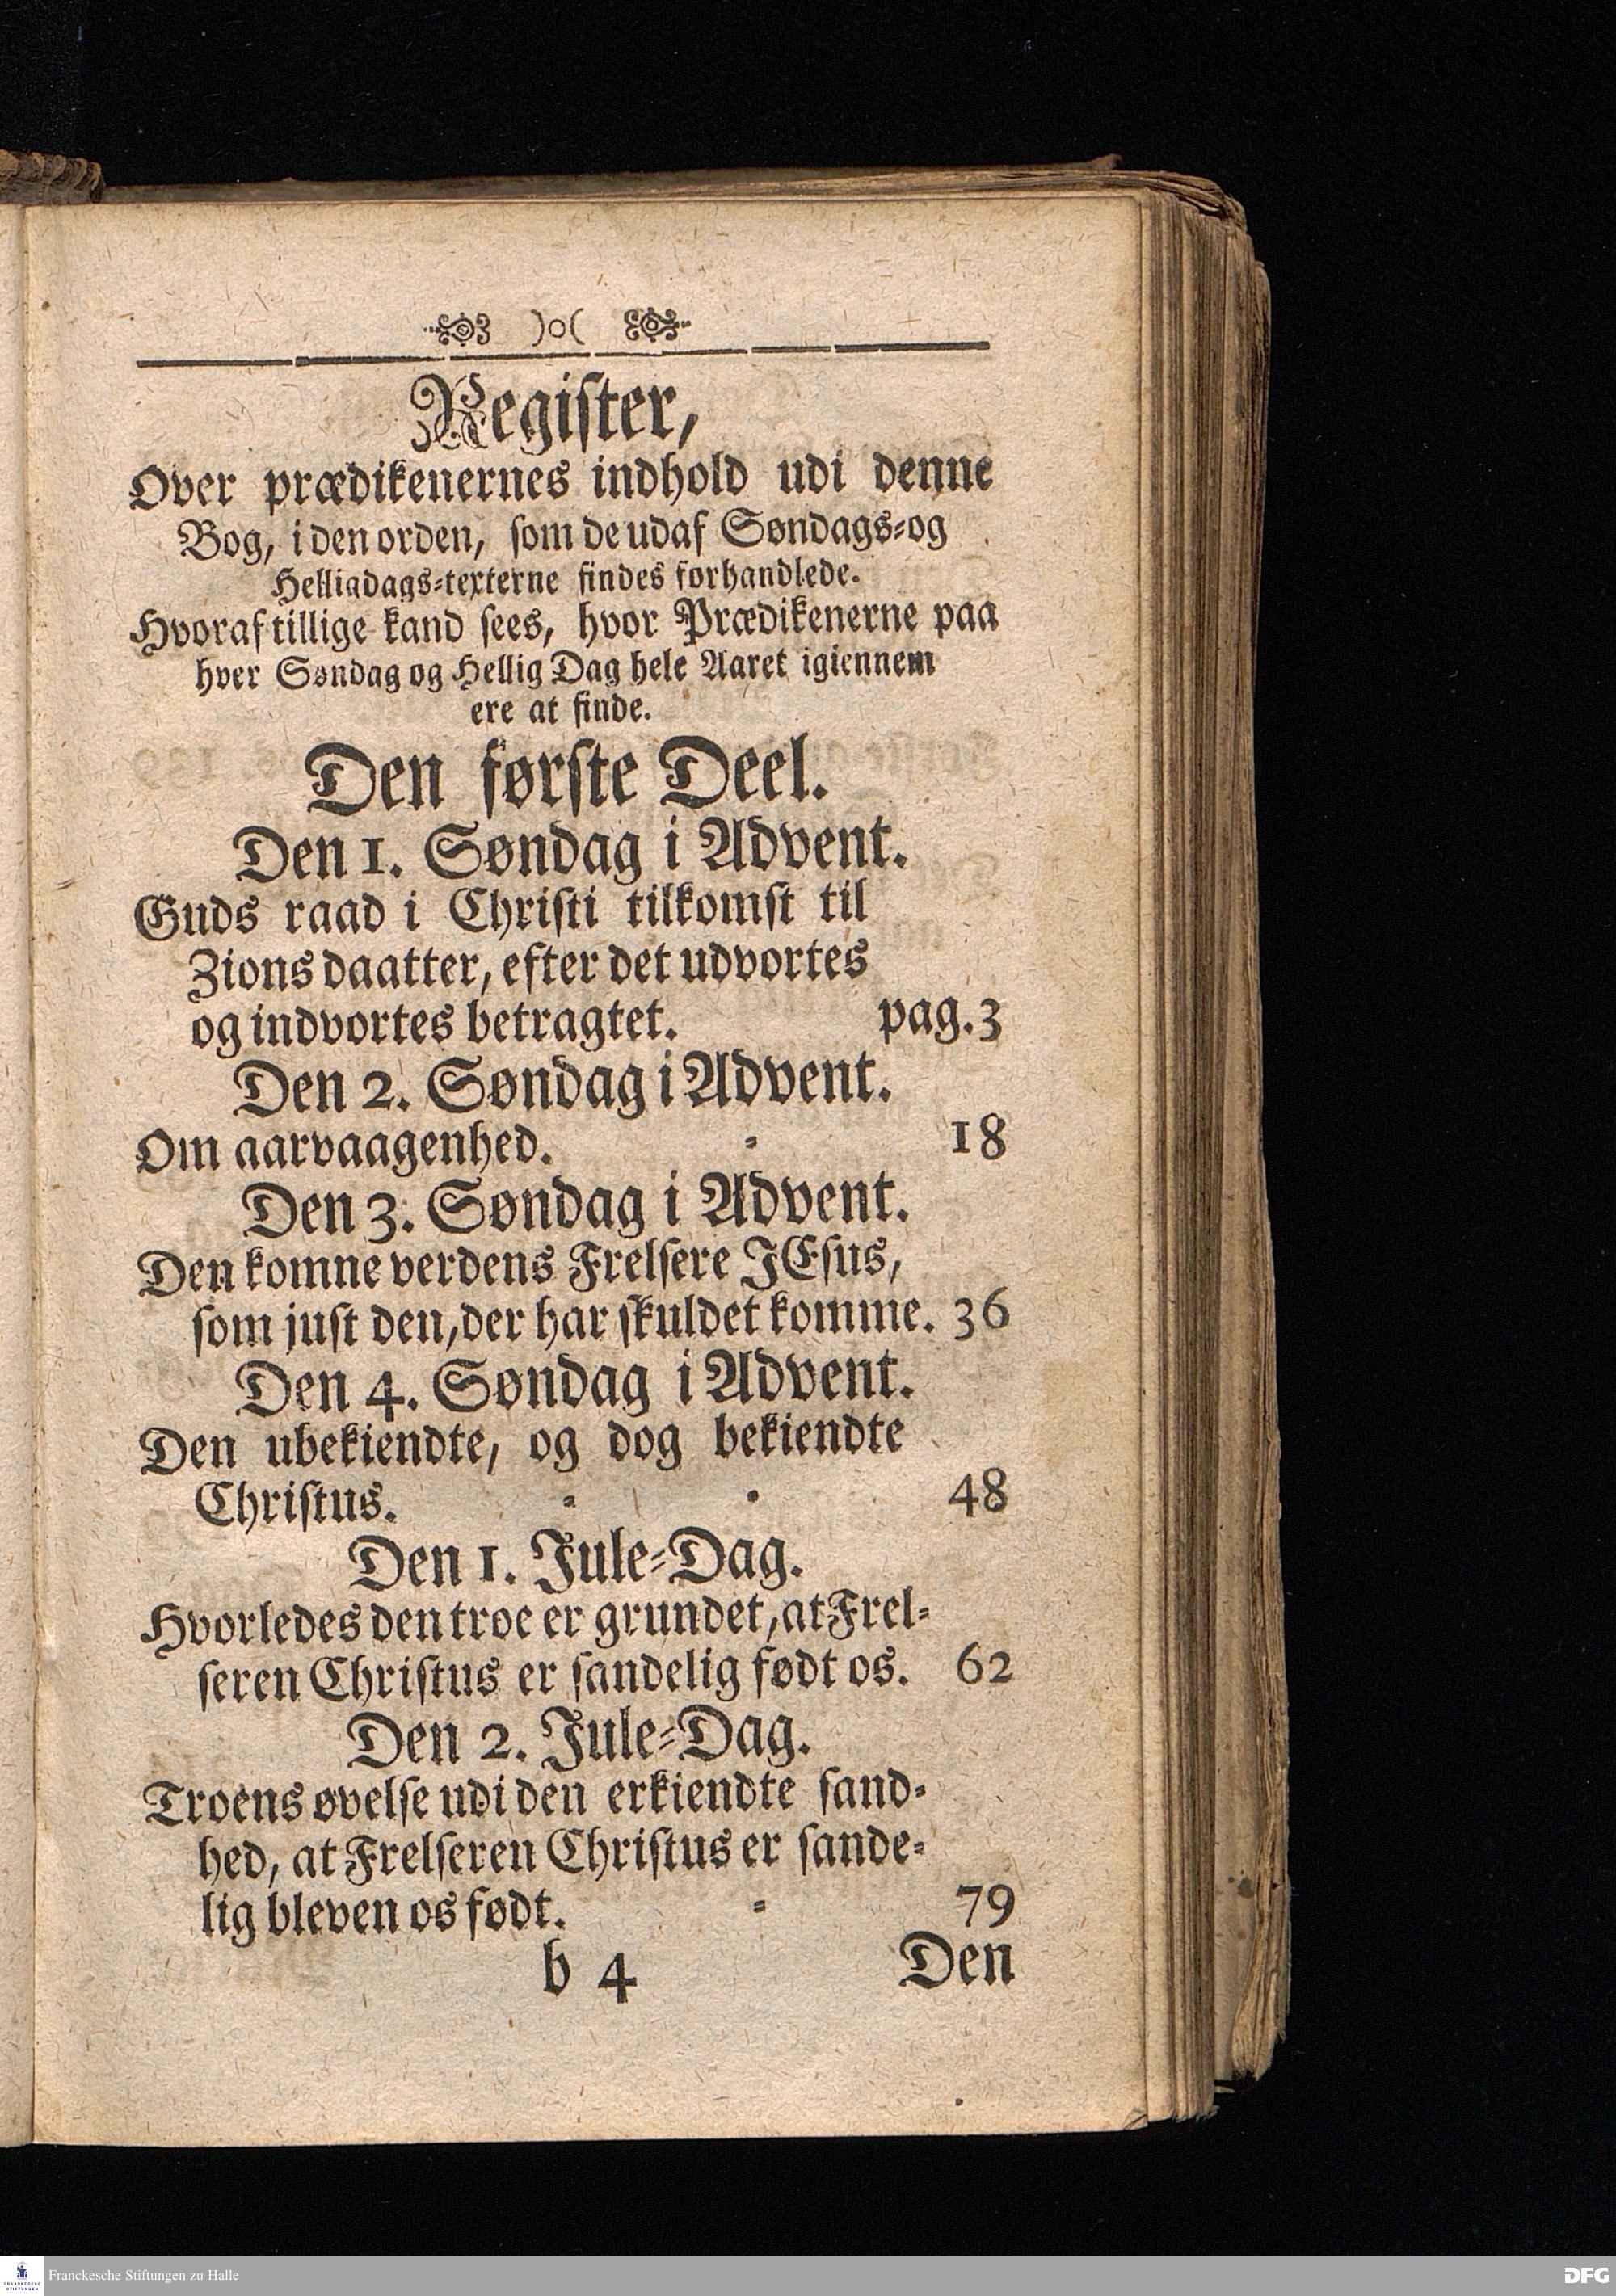 )o(
Register,
Over prædikenernes indhold udi denne
Bog, i den orden, som de udaf Søndags-og
Helligdags-texterne findes forhandlede.
Hvoraf tillige kand sees, hvor Prædikenerne paa
hver Søndag og Hellig Dag hele Aaret igiennem
ere at finde.
Den første Deel.
Den 1. Søndag i Advent.
Guds raad i Christi tilkomst til
Zions daatter, efter det udvortes
og indvortes betragtet. pag. 3
Den 2. Søndag i Advent.
Om aarvaagenhed. - 18
Den 3. Søndag i Advent.
Den komne verdens Frelsere JEsus,
som just den, der har skuldet komme. 36
Den 4. Søndag i Advent.
Den ubekiendte, og dog bekiendte
Christus. - - 48
Den 1. Jule-Dag.
Hvorledes den troe er grundet, at Frel-
seren Christus er sandelig født os. 62
Den 2. Jule-Dag.
Troens øvelse udi den erkiendte sand-
hed, at Frelseren Christus er sande-
lig bleven os født. - 79
b 4 Den
Franckesche Stiftungen zu Halle
DFG